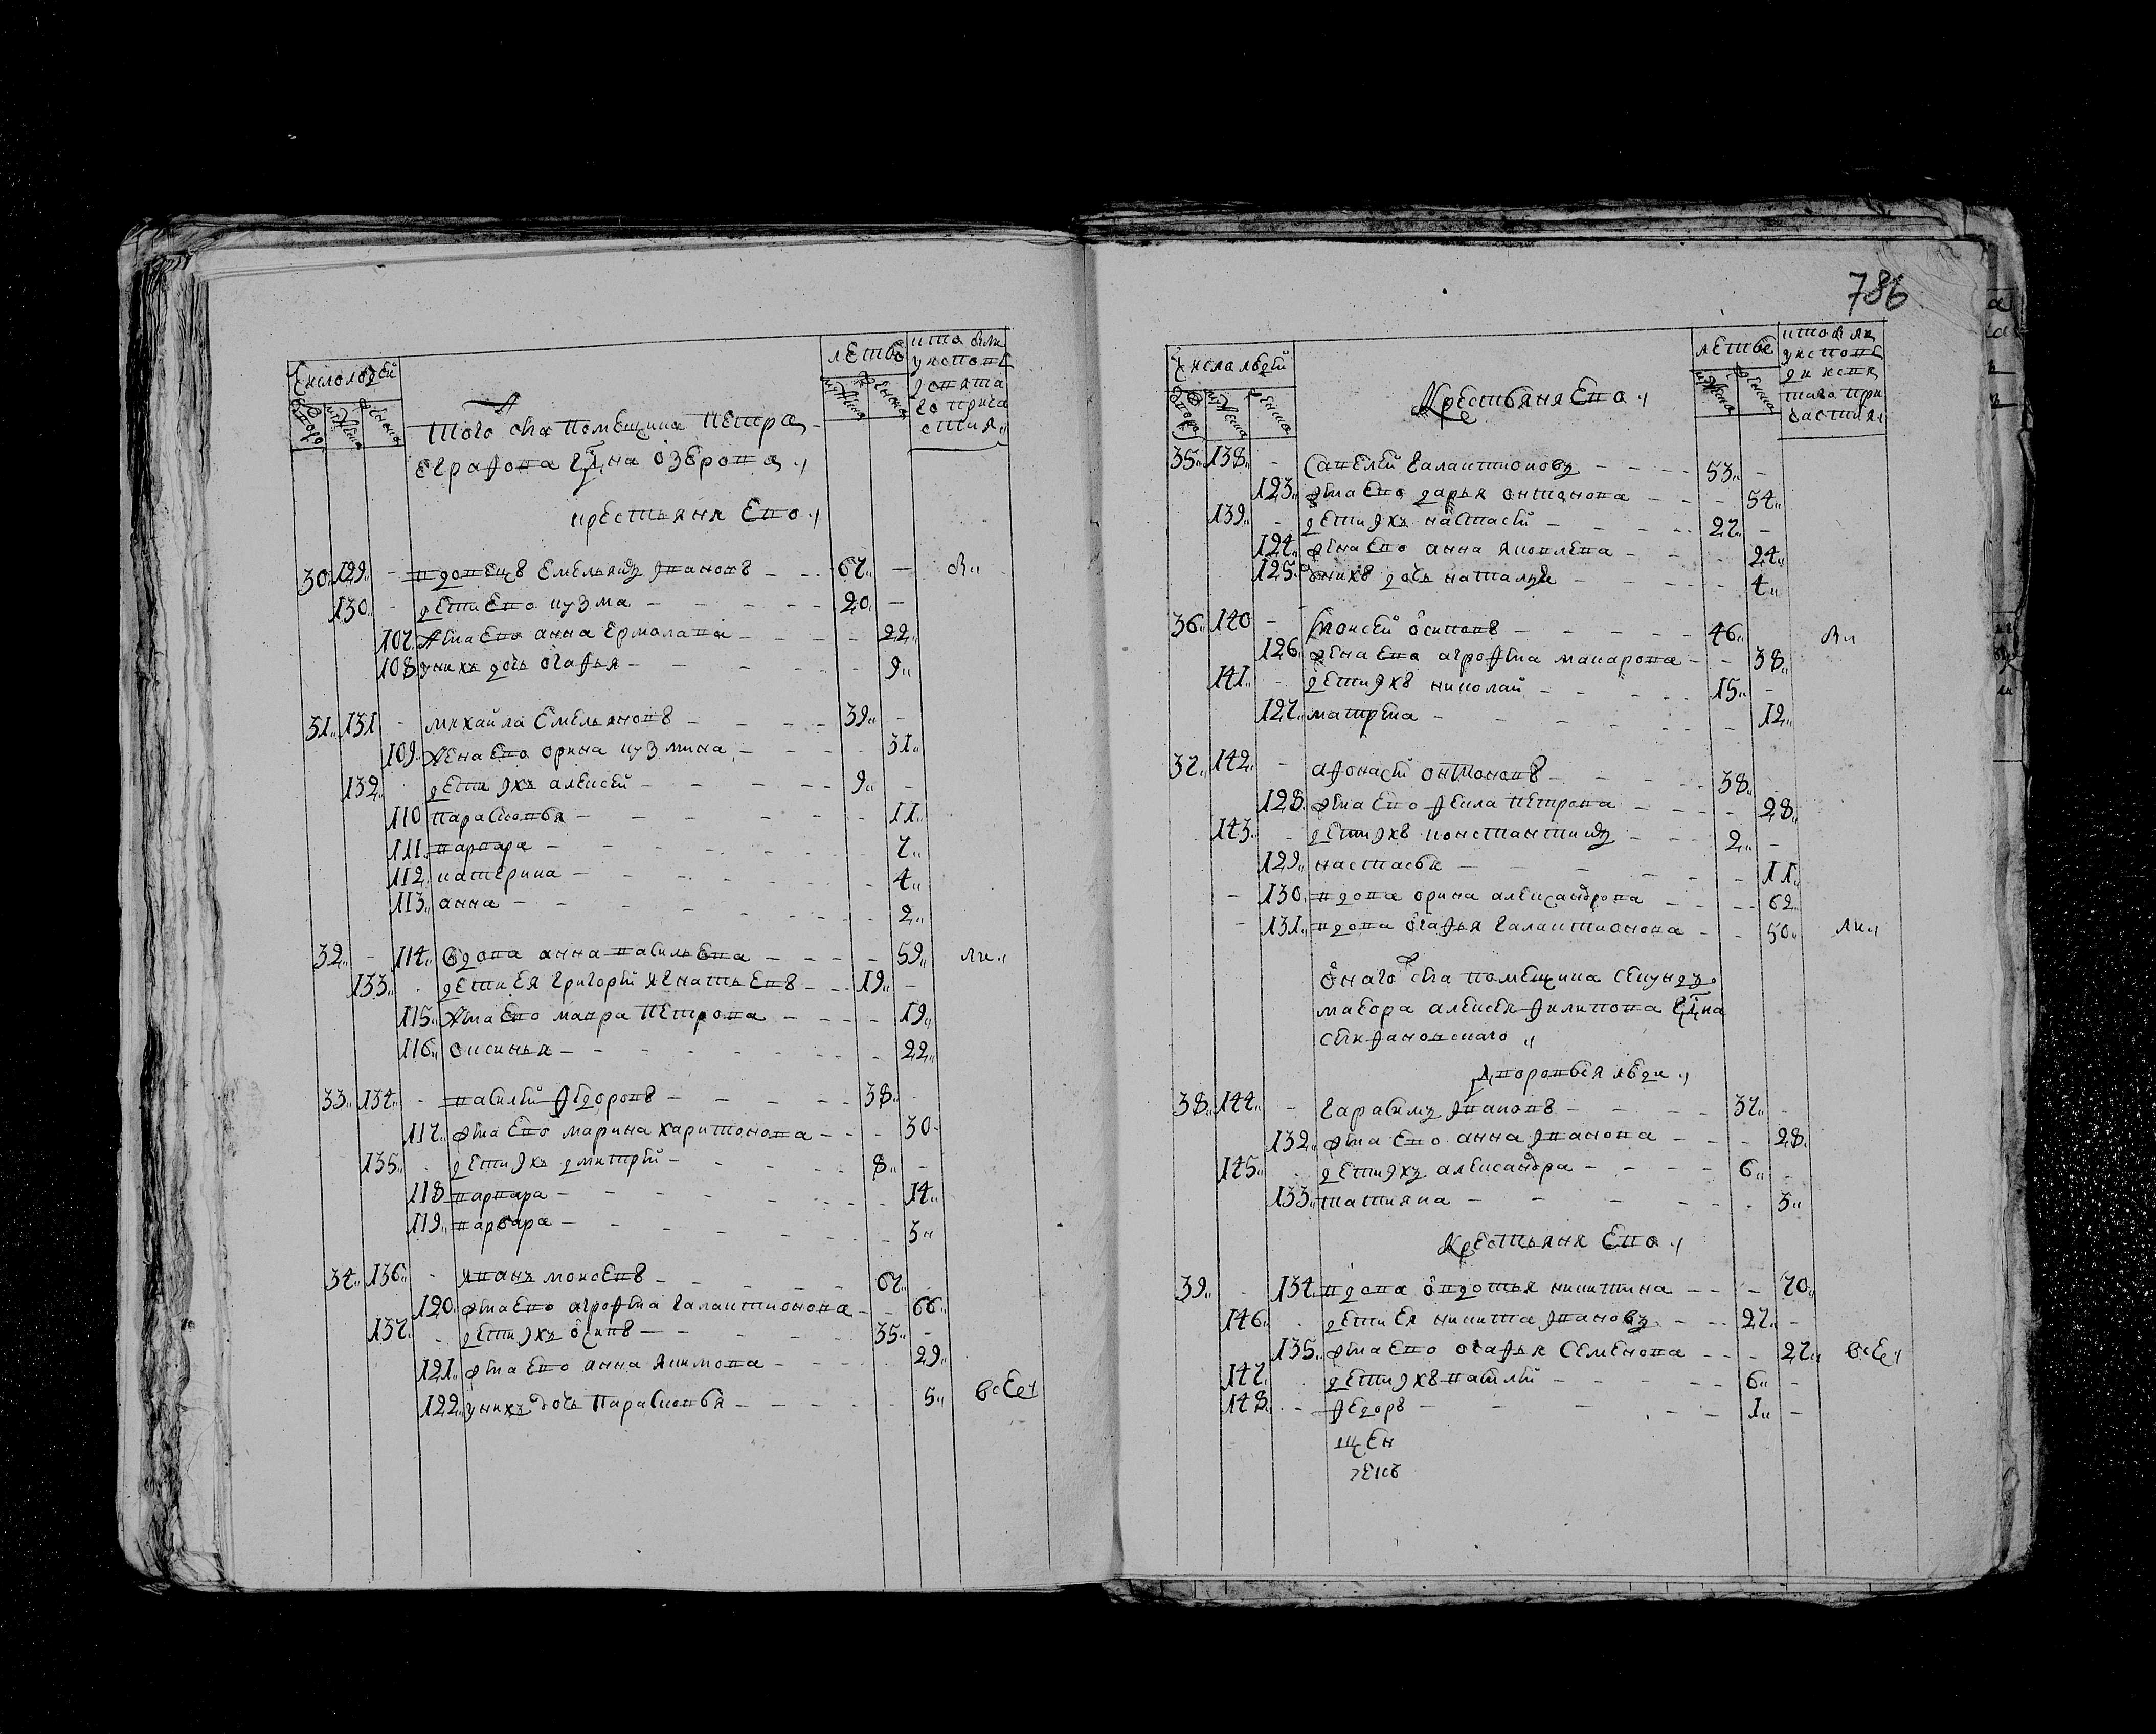 Число людей
дворо
мужска
женска
Того села помещика петра
летъ
мужска
женска
кто были
у исповѣ
ди и свята
го прича
стия
еграфова г[д]на озерова
крестьяня ево
30 129 - вдовецъ емельянъ ивановъ - - 67 - были
130 - дети ево кузма - - 20 -
107 жена ево анна ермолава - - 22
108 у нихъ дочь огафья - - 9
31 131 - михайла емельяновъ - - 39 -
109 жена ево орина кузмина - - 31
132 дети ихъ алексей - - 9 -
110 парасковья - - 11
111 варвара - - 7
112 катерина - - 4
113 анна - - 2
32 - 114 вдова анна васильева - - 59
133 дети ея григорей игнатьевъ - - 19 -
115 жена ево мавра петрова - - 19
116 оксинья - - 22
33 134 - василей федоровъ - - 38 -
117 жена ево марина харитонова - - 30
135 дети ихъ дмитрей - - 8 -
118 варвара - - 14
119 варвара - - 3
34 136 - иванъ моисевъ - - 67 -
120 жена ево агрофена галактионова - - 66
137 дети ихъ осипъ - - 35 -
121 жена ево анна якимова - - 29
122 у нихъ дочь парасковья - - 5 все
786
Число людей
дворо
мужска
женска
Крестьяня ево
летъ
мужска
женска
кто были
у исповѣ
ди и свя
таго при
частия
35 138 - савелей галактионовъ - - 53 -
123 жена ево дарья онтонова - - 54
139 - дети ихъ настасей - - 27 -
124 жена ево анна яковлева - - 24
125 у нихъ дочь наталья - - 4
36 140 - моисей осиповъ - - 46 - были
126 жена ево агрофена макарова - - 38
141 - дети ихъ николай - - 15 -
127 матрена - - 12
37 142 - афонасей онтоновъ - - 38 -
128 жена ево фекла петрова - - 28
143 - дети ихъ константинъ - - 2 -
129 настасья - - 11
- 130 вдова орина александрова - - 62
- 131 вдова огафья галактионова - - 50
Онаго села помещика секундъ
маеора алексея филипова г[д]на
селифановскаго
дворовыя люди
38 144 - гарасимъ ивановъ - - 37 -
132 жена ево анна иванова - - 28
145 дети ихъ александра - - 6 -
133 татияна - - 3
Крестьяня ево
39 - 134 вдова овдотья никитина - - 70
146 дети ея никита ивановъ - - 27 -
135 жена ево огафья семенова - - 27 все
147 дети ихъ василей - - 6 -
148 - федоръ - - 1 -
щен
никъ